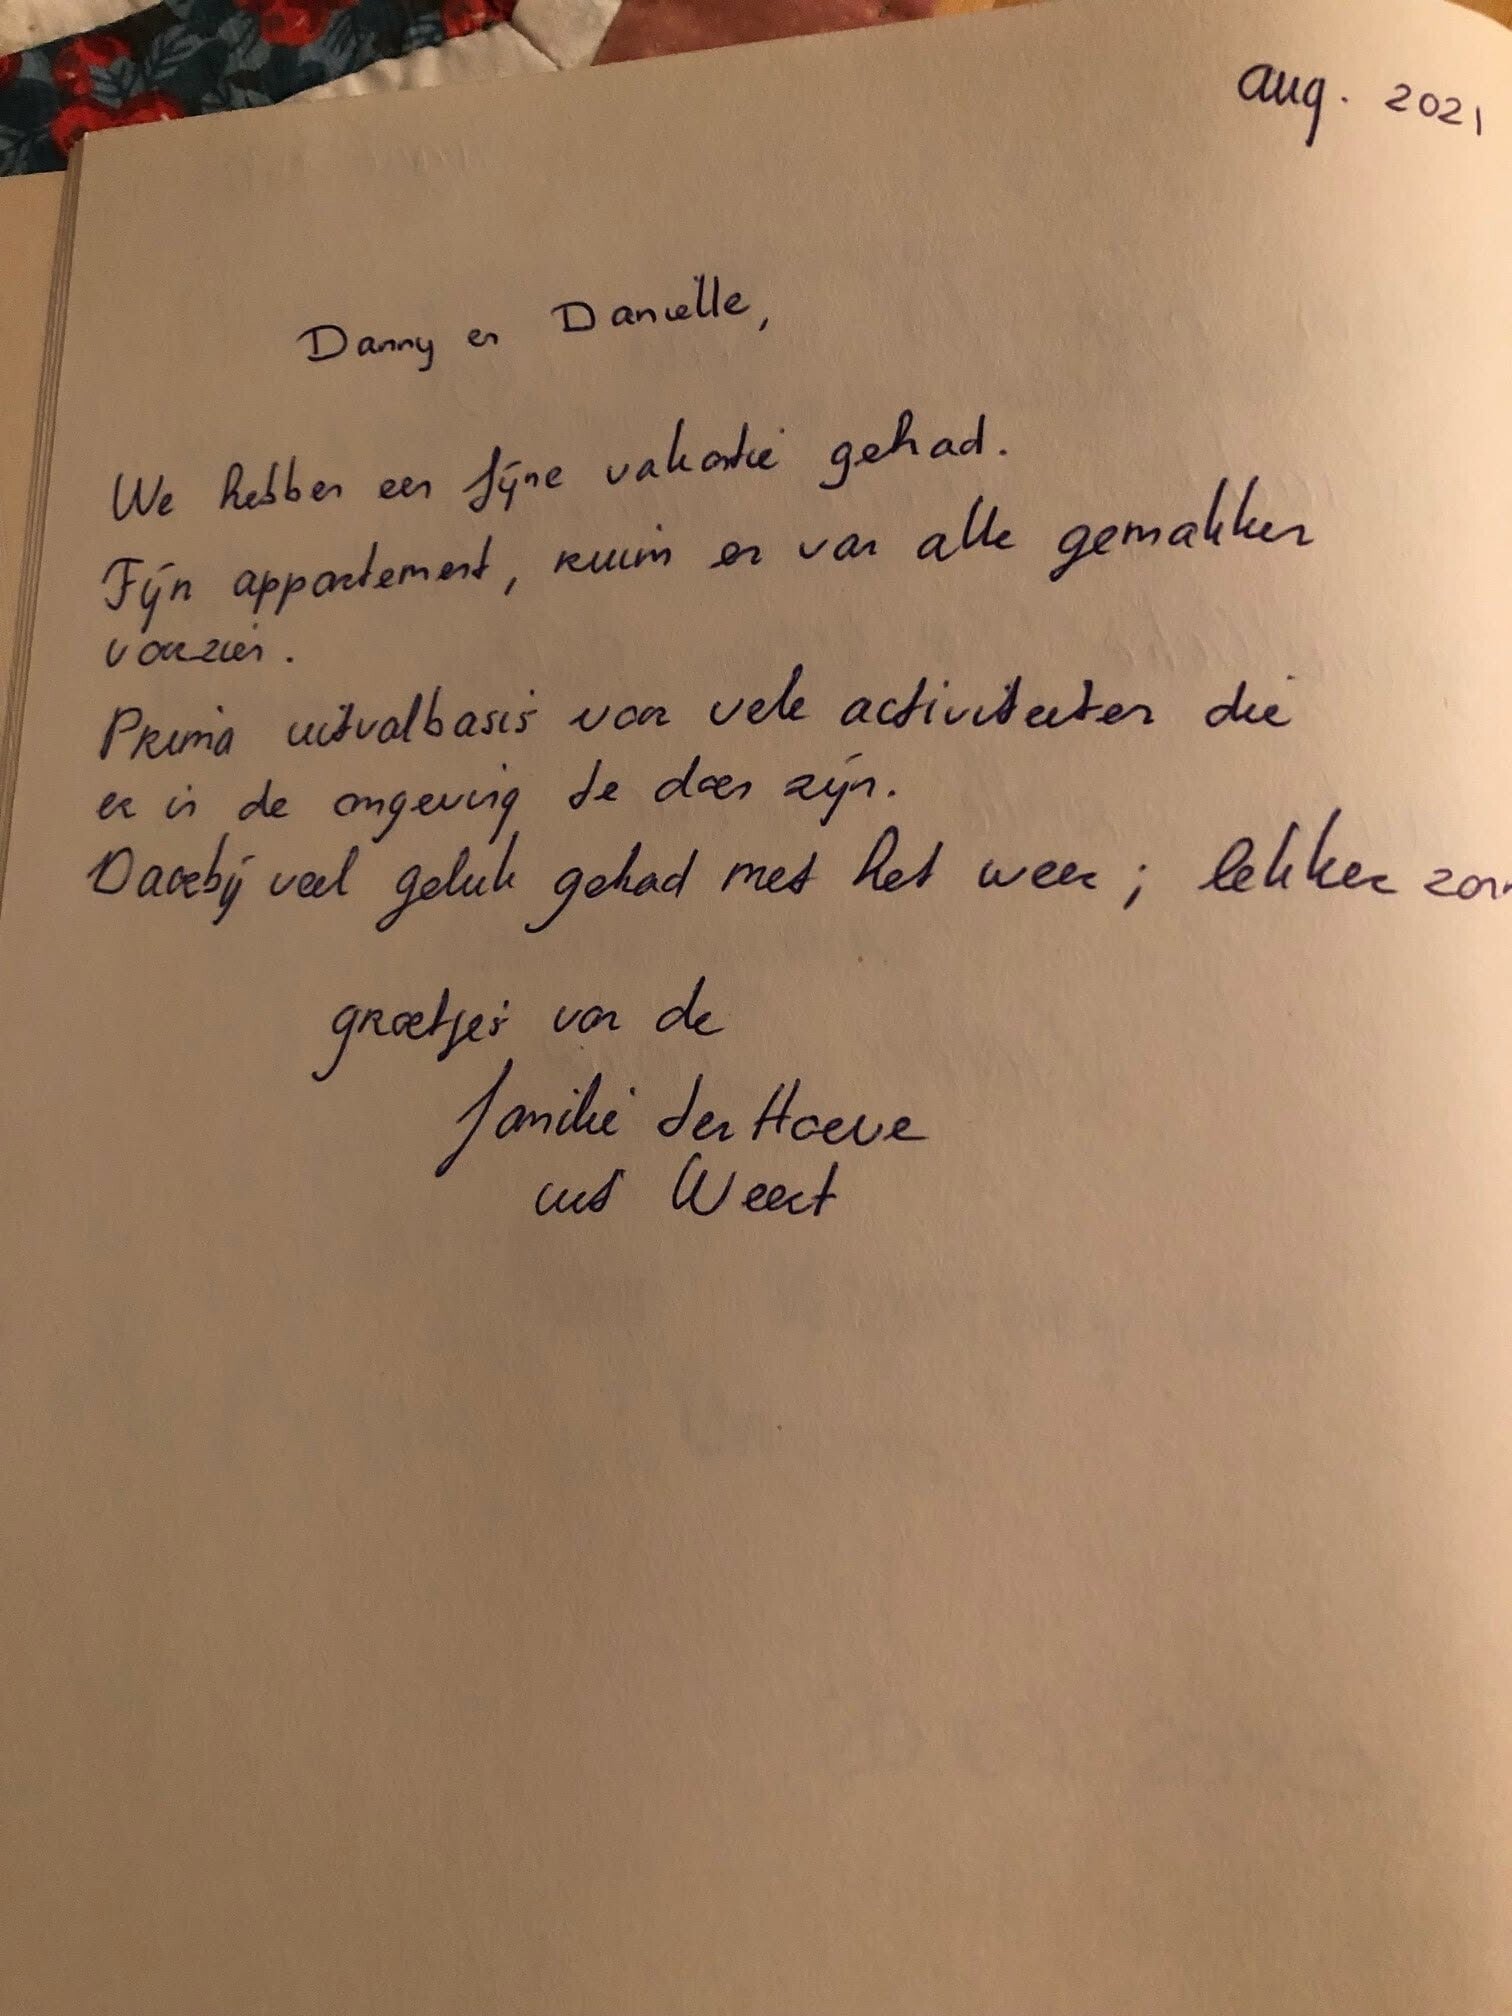 aug. 2021
Danny en Daniëlle,
We hebben een fijne vakantie gehad.
Fijn appartement, ruim en van alle gemakken
voorzien.
Prima uitvalbasis voor vele activiteiten die
er in de omgeving te doen zijn.
Daarbij veel geluk gehad met het weer; lekker zon
groetjes van de
familie ter Hoeve
uit Weert